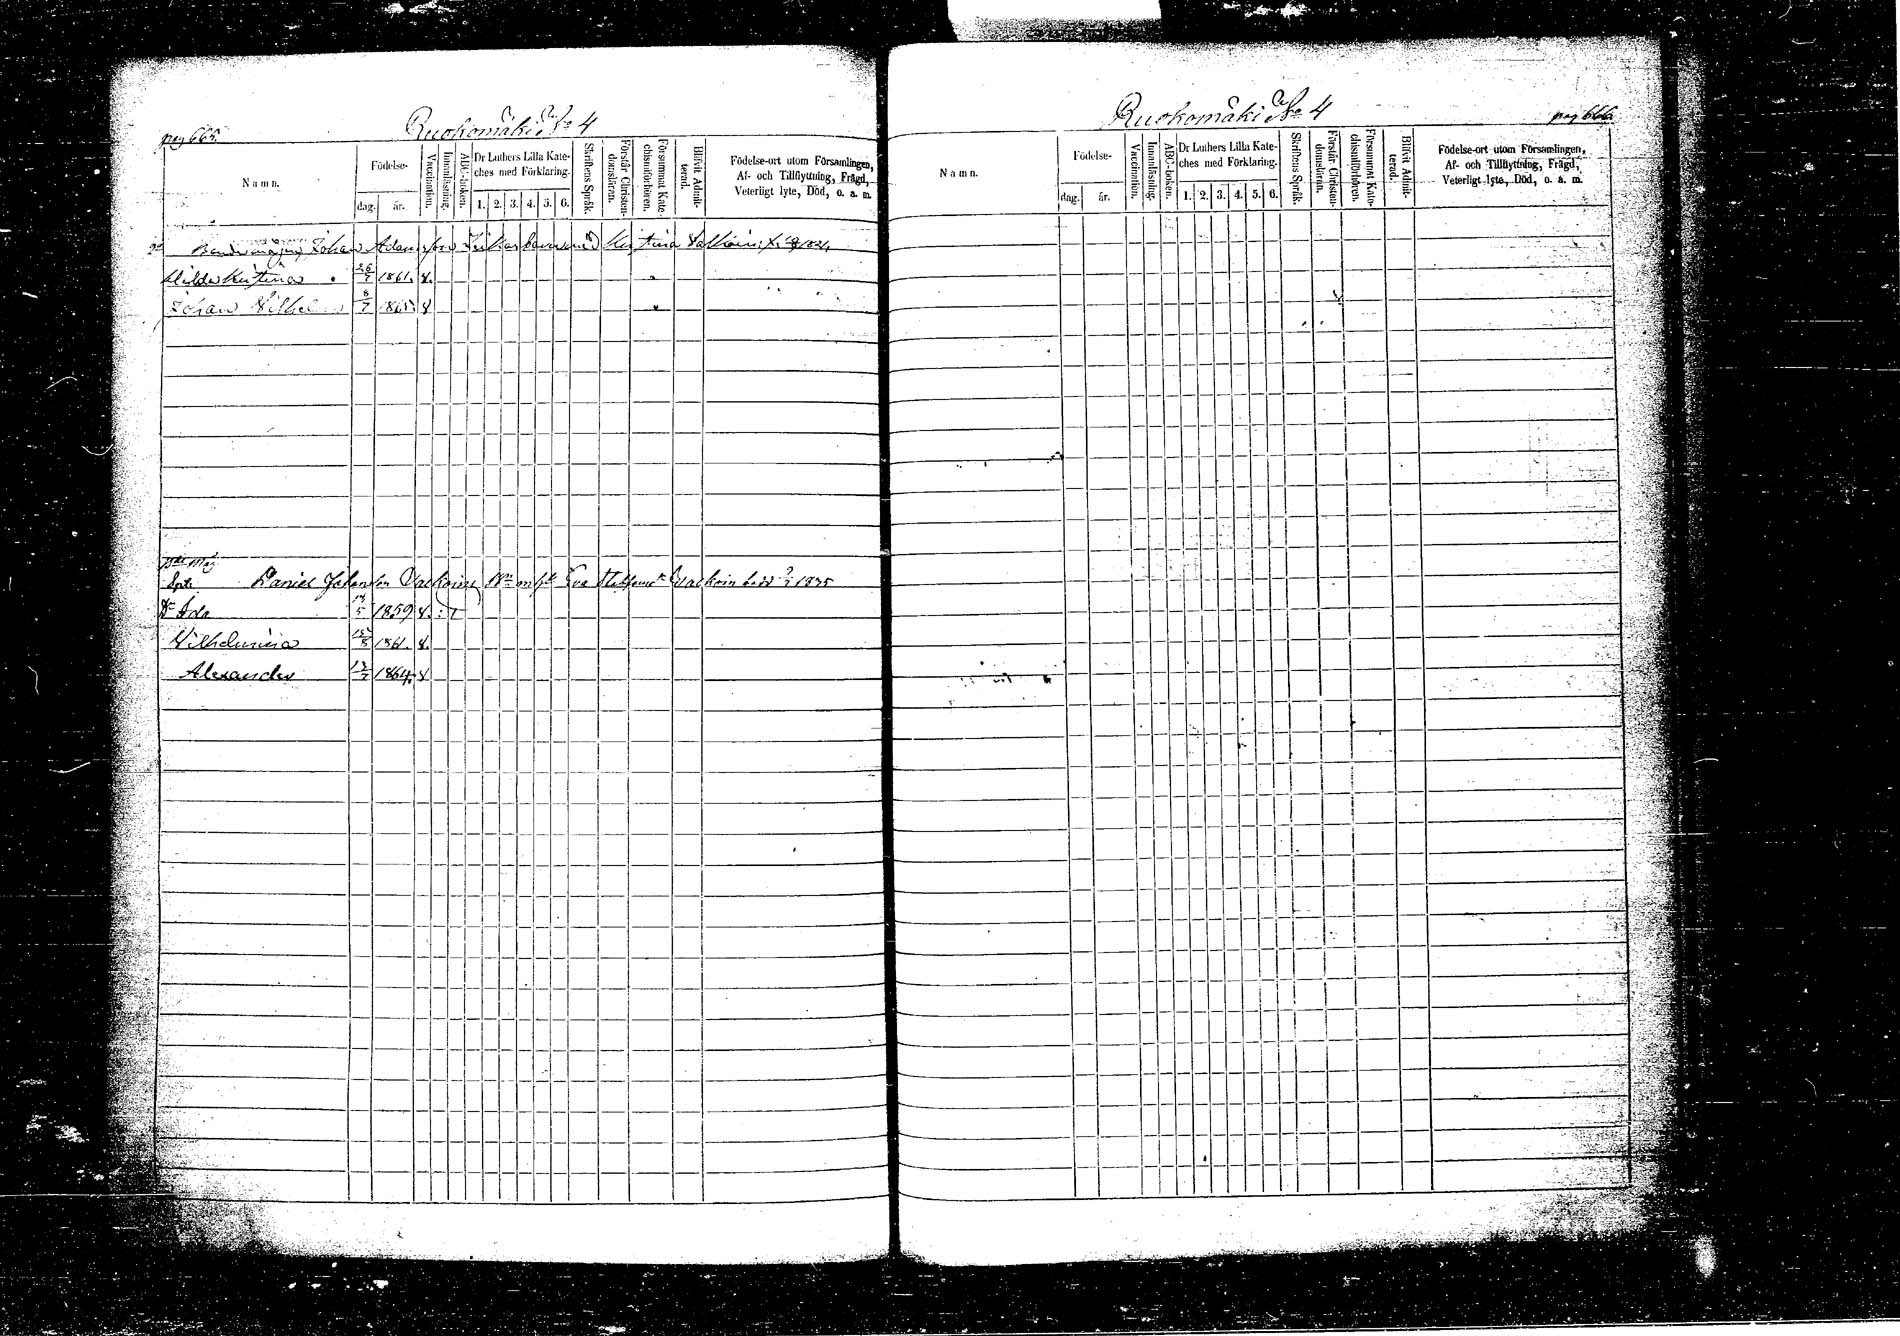 pag 665.
Ruokomäki No 4
Namn.
Födelse-
dag.
år.
Vaccination.
Innanläsning.
ABC-boken.
Dr Luthers Lilla Kate-
ches med Förklaring.
1. 2. 3. 4. 5. 6.
Skriftens Språk.
Förstår Christen-
domsläran.
Försummat Kate-
chismiförhören.
Blifvit Admit-
terad.
Födelse-ort utom Församlingen,
Af- och Tillflyttning, Frägd,
Veterligt lyte, Död, o. a. m.
Johan Adamsson barn med Kristina
Hilda Kristina 26/7 1861.
Johan Vilhelm 8/7 1865.
Daniel Johansson Valkoin Eva Valkoin född 1835
Dr Ida 5 1859
Vilhelmina 8 1861.
Alexander 13/7 1864.
Ruokomäki No 4
pag 666.
Namn.
Födelse-
dag.
år.
Vaccination.
Innanläsning.
ABC-boken.
Dr Luthers Lilla Kate-
ches med Förklaring.
1. 2. 3. 4. 5. 6.
Skriftens Språk.
Förstår Christen-
domsläran.
Försummat Kate-
chismiförhören.
Blifvit Admit-
terad.
Födelse-ort utom Församlingen,
Af- och Tillflyttning, Frägd,
Veterligt lyte, Död, o. a. m.